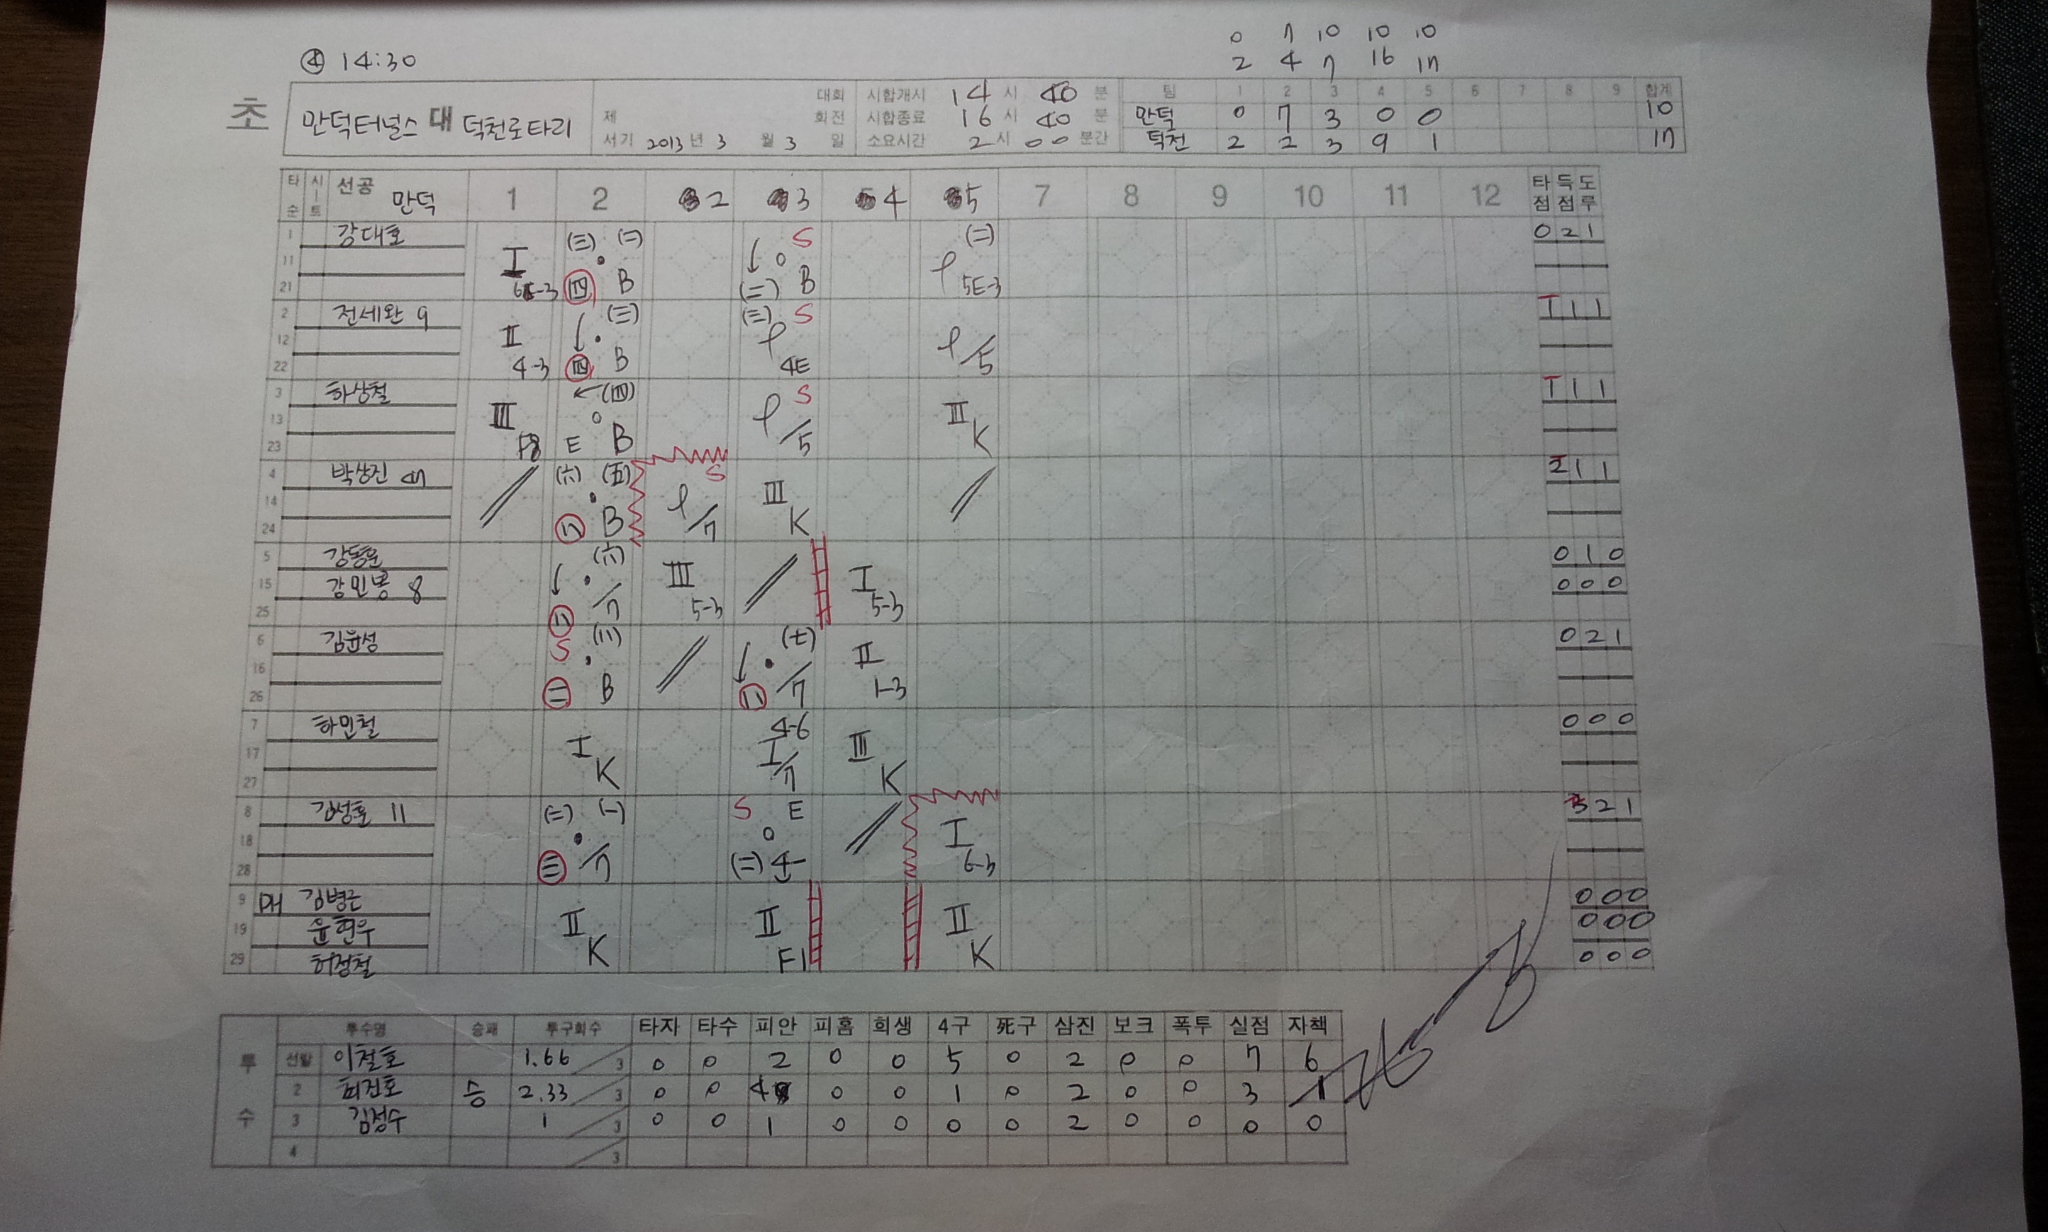 0 7 10 10 10
④ 14:30
2 4 7 16 17
초
만덕터널스 대 덕천로타리
제 대회
회전
서기 2013 년 3 월 3 일
시합개시 14 시 40 분
시합종료 16 시 40 분
소요시간 2 시 00 분간
팀 1 2 3 4 5 6 7 8 9 합계
만덕 0 7 3 0 0 10
덕천 2 2 3 9 1 17
타순 시트 선공 만덕 1 2 2 3 4 5 7 8 9 10 11 12 타점 득점 도루
1 강대호 0 2 1
11 I (三) (二) S (二)
21 6-3 四 B (二) B 5E-3
2 전세완 9 1 1 1
12 II (三) (三) S
22 4-3 四 B 4E /5
3 하상철 1 1 1
13 III (四) S II
23 F8 E B /5 K
4 박상진 2 1 1
14 (六) (五) S III
24 B /7 K
5 강동운 0 1 0
15 강민봉 8 (六) III I 0 0 0
25 /7 5-3 5-3
6 김윤성 0 2 1
16 S (七) II
26 二 B /7 1-3
7 하민철 0 0 0
17 I 4-6 I III
27 K /7 K
8 김성훈 11 3 2 1
18 (三) (一) S E I
28 三 /7 (二) 4 6-3
9 DH 김병근 0 0 0
19 윤현우 II II II 0 0 0
29 허정철 K F1 K 0 0 0
투수 투수명 승패 투구회수 타자 타수 피안 피홈 희생 4구 死구 삼진 보크 폭투 실점 자책
선발 이철호 1.66 /3 0 0 2 0 0 5 0 2 0 0 7 6
2 최진호 승 2.33 /3 0 0 4 0 0 1 0 2 0 0 3 1
3 김정수 1 /3 0 0 1 0 0 0 0 2 0 0 0 0
4 /3